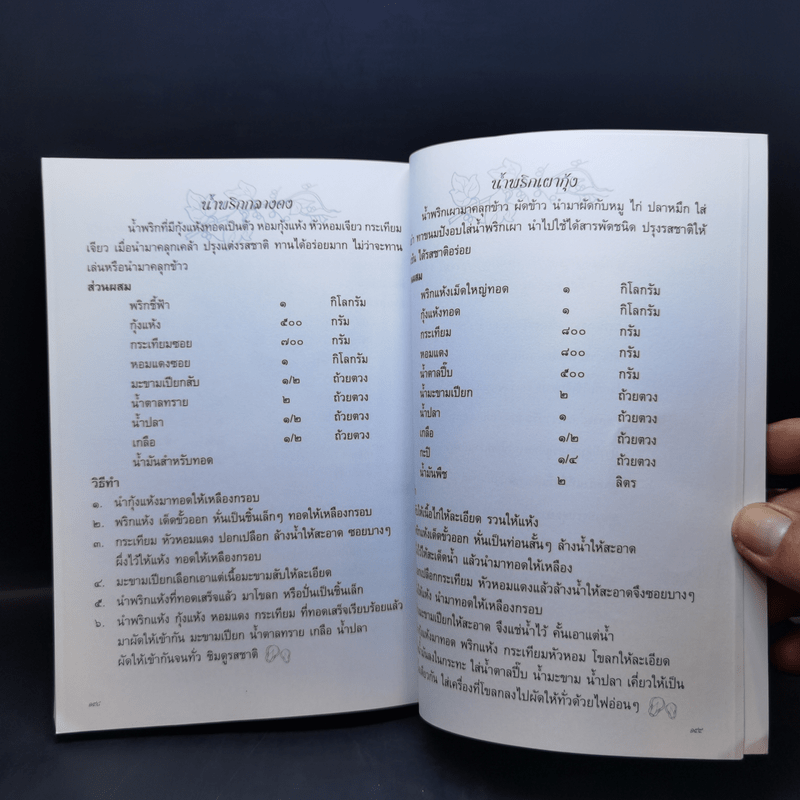 น้ำพริกกลางดง
น้ำพริกที่มีกุ้งแห้งทอดเป็นตัว หอมกุ้งแห้ง หัวหอมเจียว กระเทียม
เจียว เมื่อนำมาคลุกเคล้า ปรุงแต่งรสชาติ ทานได้อร่อยมาก ไม่ว่าจะทาน
เล่นหรือนำมาคลุกข้าว
ส่วนผสม
พริกชี้ฟ้า ๑ กิโลกรัม
กุ้งแห้ง ๕๐๐ กรัม
กระเทียมซอย ๗๐๐ กรัม
หอมแดงซอย ๑ กิโลกรัม
มะขามเปียกสับ ๑/๒ ถ้วยตวง
น้ำตาลทราย ๒ ถ้วยตวง
น้ำปลา ๑/๒ ถ้วยตวง
เกลือ ๑/๒ ถ้วยตวง
น้ำมันสำหรับทอด
วิธีทำ
๑. นำกุ้งแห้งมาทอดให้เหลืองกรอบ
๒. พริกแห้ง เด็ดขั้วออก หั่นเป็นชิ้นเล็กๆ ทอดให้เหลืองกรอบ
๓. กระเทียม หัวหอมแดง ปอกเปลือก ล้างน้ำให้สะอาด ซอยบางๆ
ผึ่งไว้ให้แห้ง ทอดให้เหลืองกรอบ
๔. มะขามเปียกเลือกเอาแต่เนื้อมะขามสับให้ละเอียด
๕. นำพริกแห้งที่ทอดเสร็จแล้ว มาโขลก หรือปั่นเป็นชิ้นเล็ก
๖. นำพริกแห้ง กุ้งแห้ง หอมแดง กระเทียม ที่ทอดเสร็จเรียบร้อยแล้ว
มาผัดให้เข้ากัน มะขามเปียก น้ำตาลทราย เกลือ น้ำปลา
ผัดให้เข้ากันจนทั่ว ชิมดูรสชาติ
น้ำพริกเผากุ้ง
น้ำพริกเผามาคลุกข้าว ผัดข้าว นำมาผัดกับหมู ไก่ ปลาหมึก ใส่
ทาขนมปังอบใส่น้ำพริกเผา นำไปใช้ได้สารพัดชนิด ปรุงรสชาติให้
ได้รสชาติอร่อย
พริกแห้งเม็ดใหญ่ทอด ๑ กิโลกรัม
กุ้งแห้งทอด ๑ กิโลกรัม
กระเทียม ๘๐๐ กรัม
หอมแดง ๘๐๐ กรัม
น้ำตาลปี๊บ ๕๐๐ กรัม
น้ำมะขามเปียก ๒ ถ้วยตวง
น้ำปลา ๑ ถ้วยตวง
เกลือ ๑/๒ ถ้วยตวง
กะปิ ๑/๔ ถ้วยตวง
น้ำมันพืช ๒ ลิตร
ให้เนื้อไก่ให้ละเอียด รวนให้แห้ง
เด็ดขั้วออก หั่นเป็นท่อนสั้นๆ ล้างน้ำให้สะอาด
ให้สะเด็ดน้ำ แล้วนำมาทอดให้เหลือง
กระเทียม หัวหอมแดงแล้วล้างน้ำให้สะอาดจึงซอยบางๆ
นำมาทอดให้เหลืองกรอบ
มะขามเปียกให้สะอาด จึงแช่น้ำไว้ คั้นเอาแต่น้ำ
มาทอด พริกแห้ง กระเทียมหัวหอม โขลกให้ละเอียด
ลงในกระทะ ใส่น้ำตาลปี๊บ น้ำมะขาม น้ำปลา เคี่ยวให้เป็น
ใส่เครื่องที่โขลกลงไปผัดให้ทั่วด้วยไฟอ่อนๆ